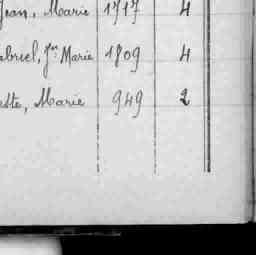 Jean, Marie 1717 4
abriel, Jn Marie 1809 4
ette, Marie 949 2